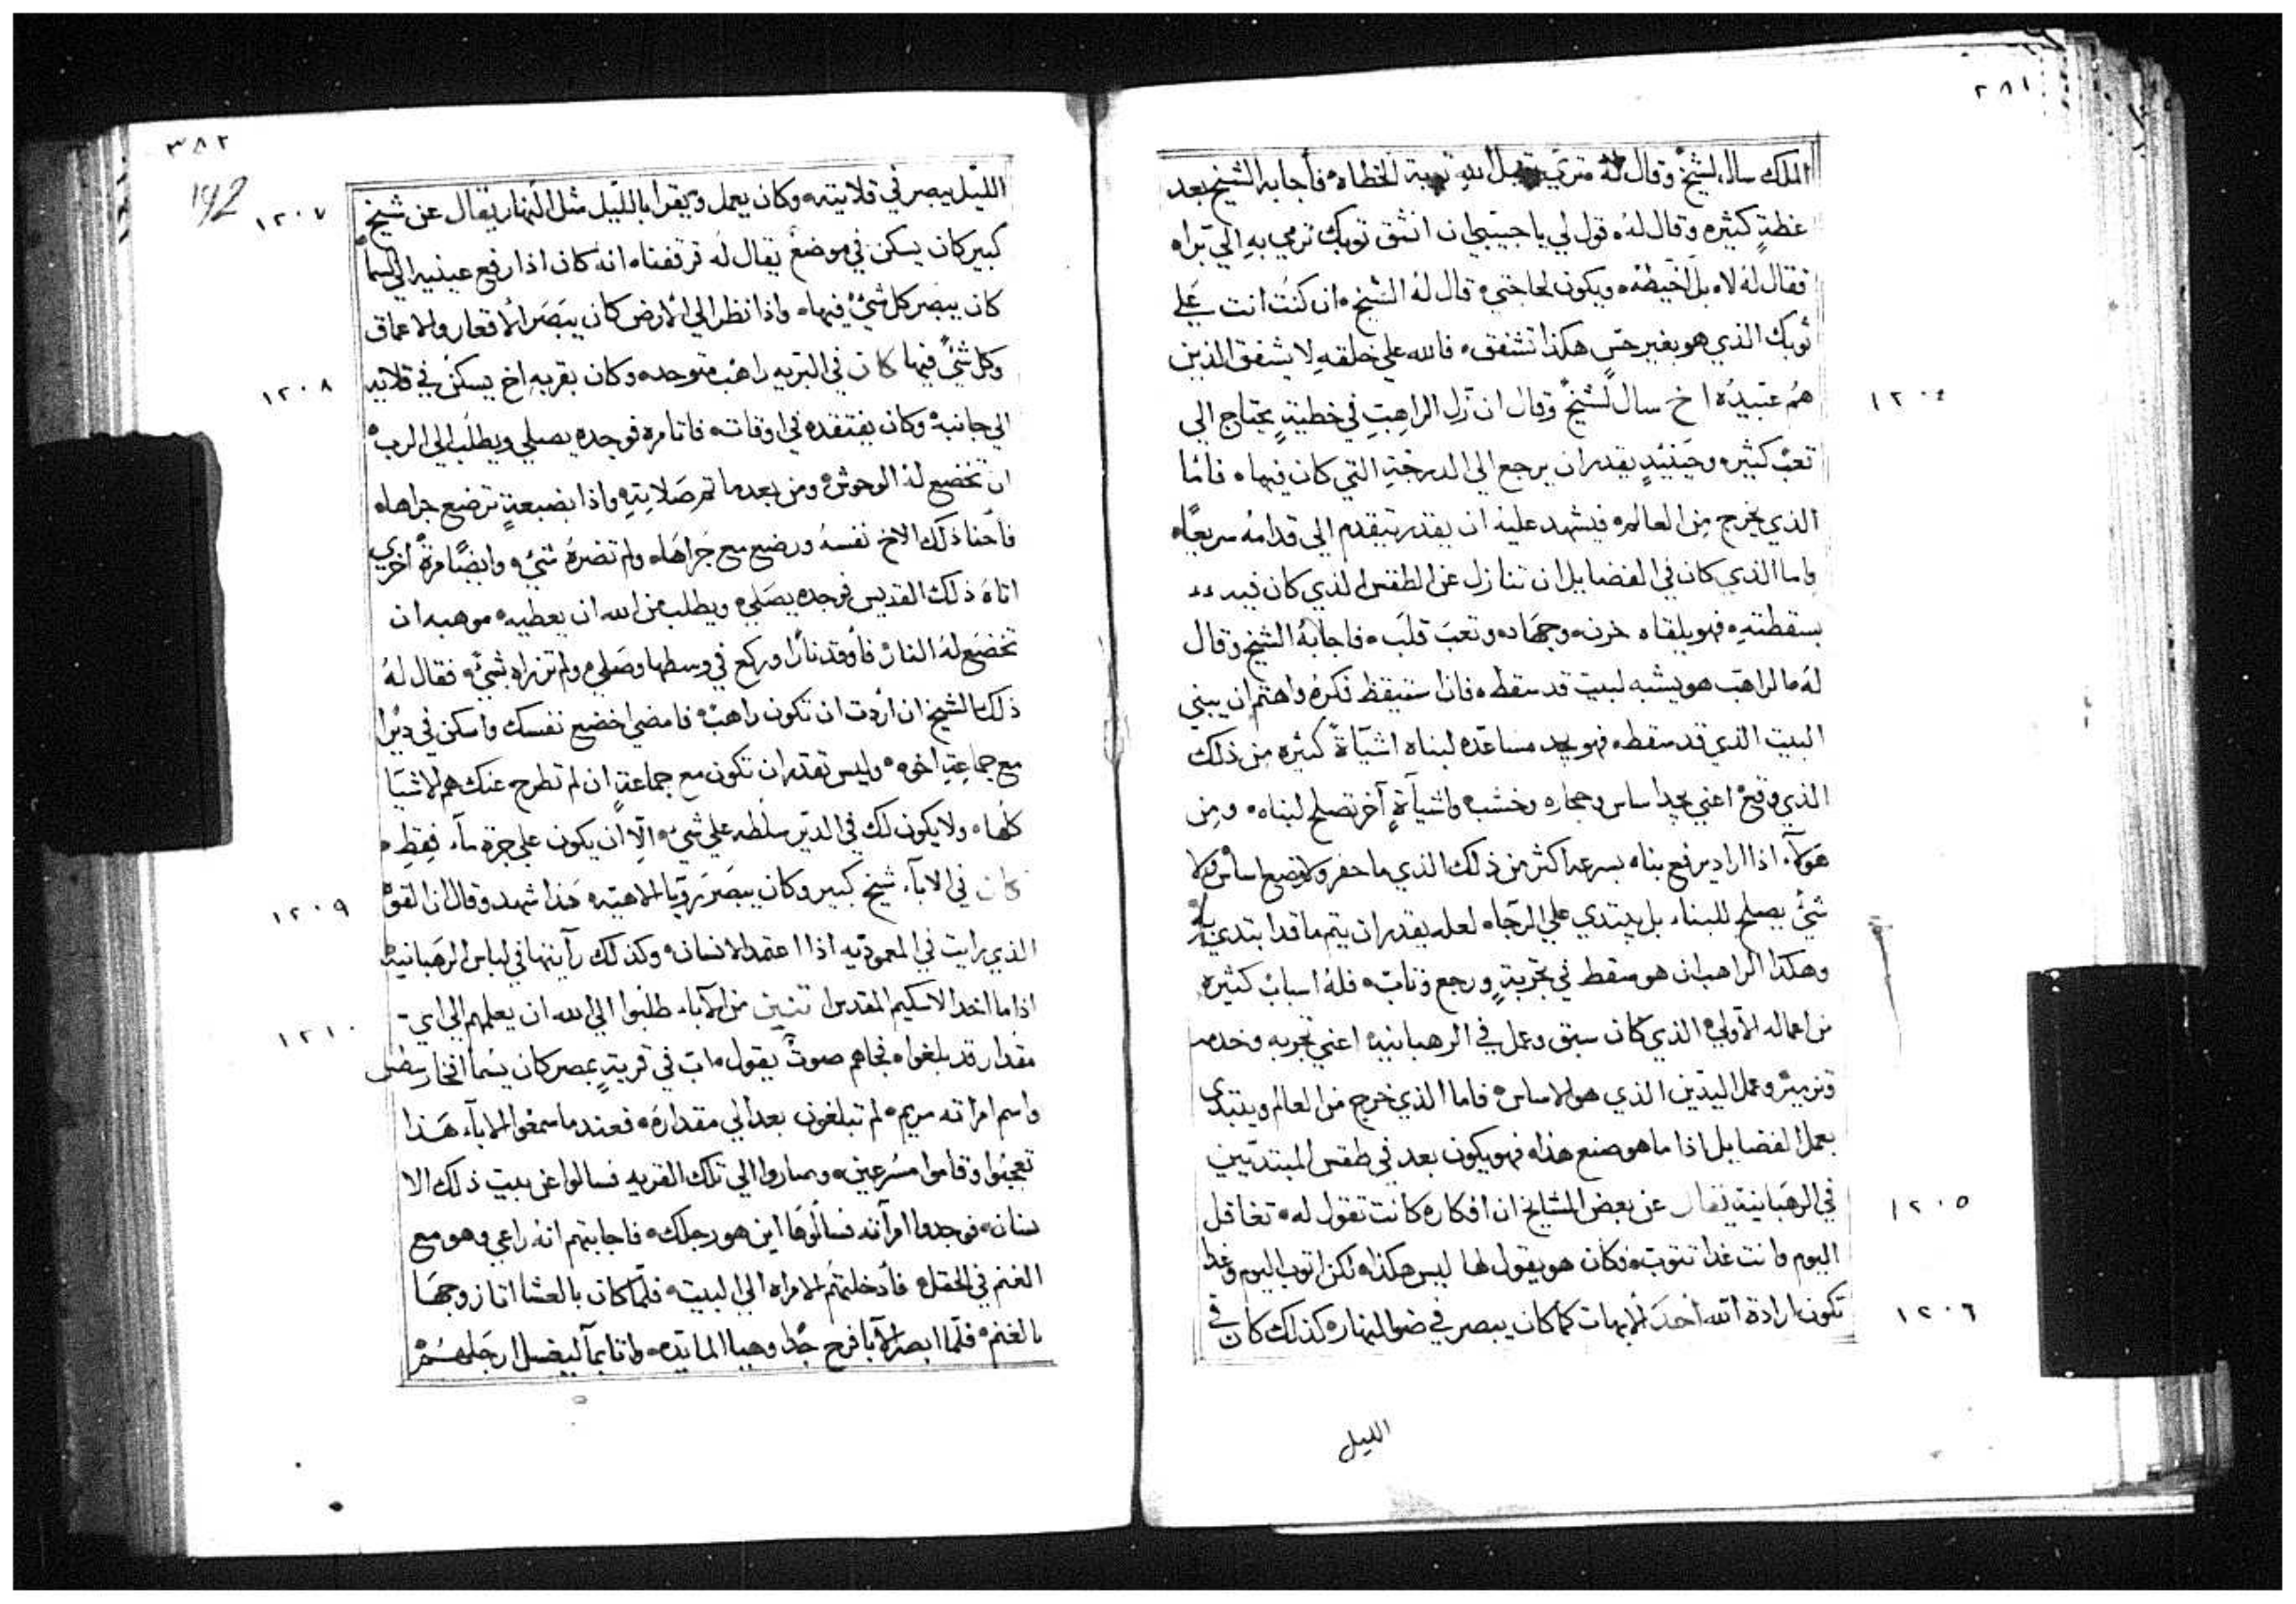 ٣٨١
الملك سال لشيخ وقال له متري يقبل الله توبة الخطاه فأجابه الشيخ بعد
عظةٍ كثيره وقال له قول لي يا حبيبي ان انشق توبك ترمي بهِ الي براه
فقال له لاه بل اخيطه ويكون لحاجتي قال له الشيخ ان كنت انت علي
ثوبك الذي هو بغير حس هكذا تشفق فالله علي خلقهِ لا يشفق الذين
هم عبيده اخ سال لشيخ وقال ان زل الراهبِ في خطيةٍ يحتاج الي
١٢٠٤
تعب كثيره وحينيدٍ يقدر ان يرجع الي الدرجةِ التي كان فيها فاما
الذي يخرج من العالم فيشهد عليه ان يقدر يتقدم الي قدامه سريعًا
واما الذي كان في الفضايل ان تنازل عن الطقس الذي كان فيه
بسقطتهِ فهو يلقاه حزن وجهاده وتعب قلبه فاجابه الشيخ وقال
له ما الراهب هو يشبه لبيت قد سقط فاذا ستيقظ فكره واهتم ان يبني
البيت الذي قد سقط فهو يجد مساعده لبناه اشيآة كثيره من ذلك
الذي وقع اعني يجد اساس وحجاره وخشب واشيآةٍ آخر تصلح لبناه ومن
هولآء اذا اراد يرفع بناه بسرعه اكثر من ذلك الذي ما حفر ولا وضع اساس ولا
شئ يصلح للبناء بل يبتدي علي الرجاه لعله يقدر ان يتم ما قد ابتدي به
وهكذا الراهب ان هو سقط في تجربةٍ ورجع وتاب فله اسباب كثيره
من اعماله الاولي الذي كان سبق وعمل في الرهبانيه اعني تجربه وخدمه
وتزمير وعمل اليدين الذي هو الاساس فاما الذي خرج من العالم ويبتدي
بعمل الفضايل اذا ما هو صنع هذه فهو يكون بعد في طقس المبتديين
في الرهبانية يقال عن بعض المشايخ ان افكاره كانت تقول له تغافل
١٢٠٥
اليوم وانت غدا تتوب وكان هو يقول لها ليس هكذا لكن اتوب اليوم وغدا
تكون ارادة الله احد الابهات كما كان يبصر في ضو النهار كذلك كان في
١٢٠٦
الليل
٣٨٢
192
الليل يبصر في قلايته وكان يعمل ويقرا بالليل مثل النهار يقال عن شيخ
١٢٠٧
كبير كان يسكن في موضع يقال له انه كان اذا رفع عينيه الي السما
كان يبصر كل شئ فيها واذا نظر الي الارض كان يبصر الاقعار والاعماق
وكل شئ فيها كان في البريه راهب متوحد وكان بقربهِ اخ يسكن في قلايه
١٢٠٨
الي جانبه وكان يفتقده في اوقات فاتا مره فوجده يصلي ويطلب الي الرب
ان تخضع له الوحوش ومن بعد ما تم صلاتهِ واذا بضبعةٍ ترضع جراها
فأحنا ذلك الاخ نفسه ورضع مع جراها ولم تضره شئ وايضًا مرةً اخري
اتاه ذلك القديس فوجده يصلي ويطلب من الله ان يعطيه موهبه ان
تخضع له النار فأوقد نارًا وركع في وسطها وصلي ولم تزراه بشئ فقال له
ذلك الشيخ ان اردت ان تكون راهب فامضي اخضع نفسك واسكن في ديرًا
مع جماعةِ اخوه وليس تقدر ان تكون مع جماعةٍ ان لم تطرح عنك هم الاشيا
كلها ولا يكون لك في الدير سلطه علي شي الا ان يكون علي جرة مآء فقط
كان في الابآء شيخ كبير وكان يبصر رويا الاهيه هذا شهد وقال ان القو
١٢٠٩
الذي رايت في المعموديه اذا اعتمد الانسان وكذلك رأيتها في لباس الرهبانية
اذا ما اخد الاسكيم المقدس تنين من الآباء طلبوا الي الله ان يعلمهم الي اي
١٢١٠
مقدار قد بلغوا فجاهم صوت يقول ان في قريةٍ بمصر كان يسما
واسم امراته مريم لم تبلغون بعد الي مقداره فعند ما سمعوا الابآء هذا
تعجبوا وقاموا مسرعين وساروا الي تلك القريه فسالوا عن بيت ذلك الا
نسان فوجدوا امرأته فسالوها اين هو رجلك فاجابتهم انه راعي وهو مع
الغنم في الحقل فأدخلتهم الامراه الي البيت فلما كان بالعشا اتا زوجها
بالغنم فلما ابصر الآبا فرح جدًا وهيا المايده واتا بمآ ليغسل ارجلهم